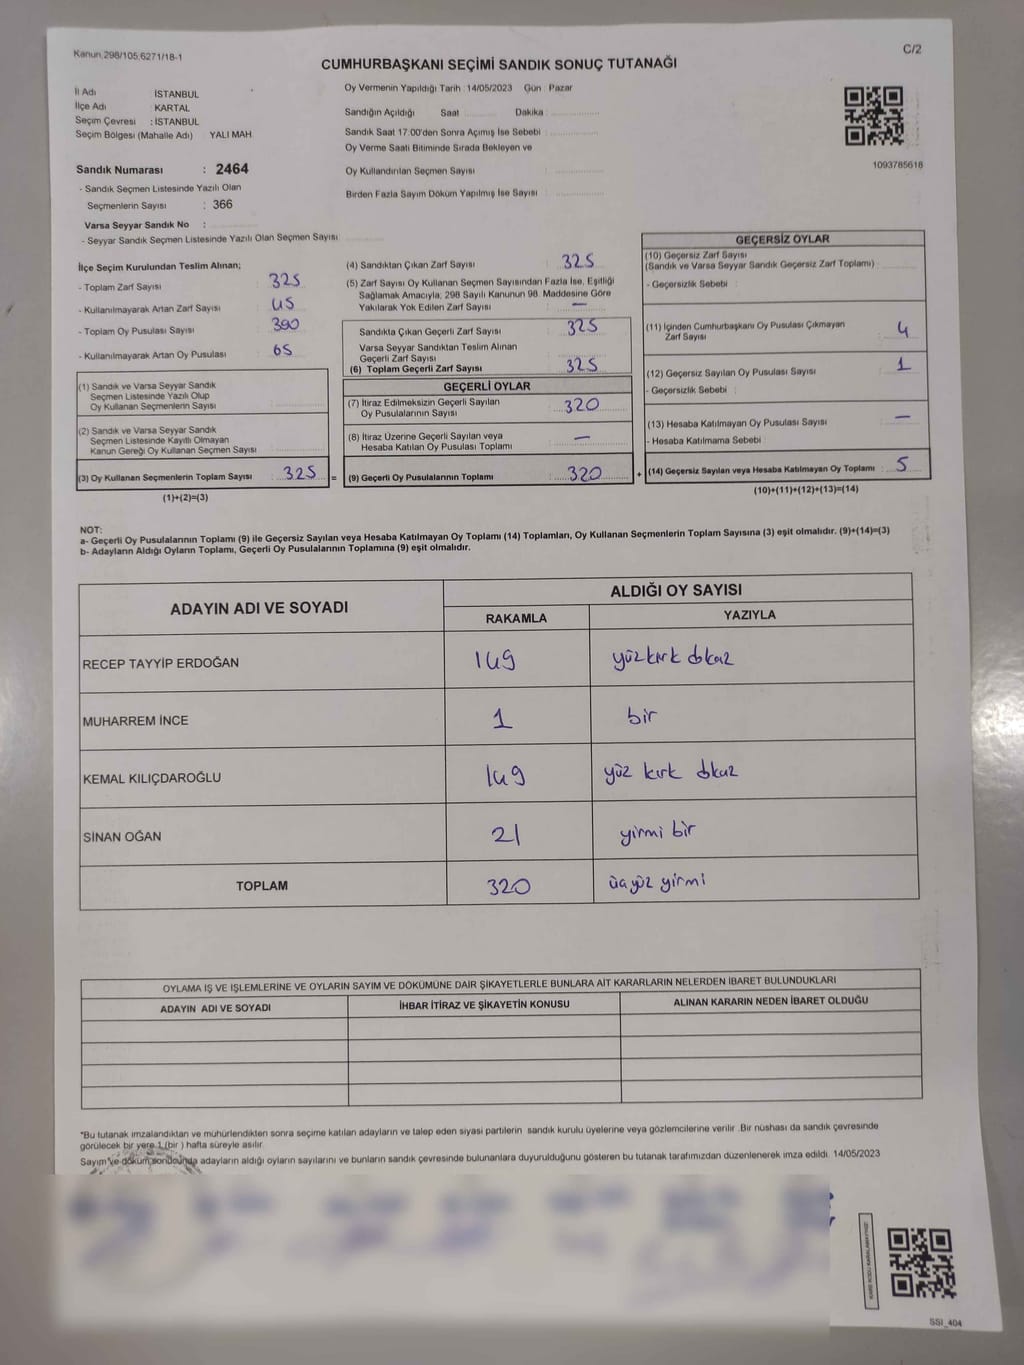 Kanun.298/105,6271/18-1
C/2
CUMHURBAŞKANI SEÇİMİ SANDIK SONUÇ TUTANAĞI
İl Adı İSTANBUL
İlçe Adı KARTAL
Seçim Çevresi : İSTANBUL
Seçim Bölgesi (Mahalle Adı) YALI MAH
Sandık Numarası : 2464
- Sandık Seçmen Listesinde Yazılı Olan
Seçmenlerin Sayısı : 366
Varsa Seyyar Sandık No :
- Seyyar Sandık Seçmen Listesinde Yazılı Olan Seçmen Sayısı
Oy Vermenin Yapıldığı Tarih : 14/05/2023 Gün : Pazar
Sandığın Açıldığı Saat Dakika
Sandık Saat 17.00'den Sonra Açımış İse Sebebi
Oy Verme Saati Bitiminde Sırada Bekleyen ve
Oy Kullandırılan Seçmen Sayısı
Birden Fazla Sayım Döküm Yapılmış İse Sayısı
1093785618
İlçe Seçim Kurulundan Teslim Alınan;
- Toplam Zarf Sayısı 325
- Kullanılmayarak Artan Zarf Sayısı 45
- Toplam Oy Pusulası Sayısı 390
- Kullanılmayarak Artan Oy Pusulası 65
(1) Sandık ve Varsa Seyyar Sandık
Seçmen Listesinde Yazılı Olup
Oy Kullanan Seçmenlerin Sayısı
(2) Sandık ve Varsa Seyyar Sandık
Seçmen Listesinde Kayıtlı Olmayan
Kanun Gereği Oy Kullanan Seçmen Sayısı
(3) Oy Kullanan Seçmenlerin Toplam Sayısı 325 =
(1)+(2)=(3)
(4) Sandıktan Çıkan Zarf Sayısı 325
(5) Zarf Sayısı Oy Kullanan Seçmen Sayısından Fazla İse, Eşitliği
Sağlamak Amacıyla, 298 Sayılı Kanunun 98. Maddesine Göre
Yakılarak Yok Edilen Zarf Sayısı : —
Sandıkta Çıkan Geçerli Zarf Sayısı 325
Varsa Seyyar Sandıktan Teslim Alınan
Geçerli Zarf Sayısı
(6) Toplam Geçerli Zarf Sayısı 325
GEÇERLİ OYLAR
(7) İtiraz Edilmeksizin Geçerli Sayılan
Oy Pusulalarının Sayısı 320
(8) İtiraz Üzerine Geçerli Sayılan veya
Hesaba Katılan Oy Pusulası Toplamı —
(9) Geçerli Oy Pusulalarının Toplamı 320 +
GEÇERSİZ OYLAR
(10) Geçersiz Zarf Sayısı
(Sandık ve Varsa Seyyar Sandık Geçersiz Zarf Toplamı)
- Geçersizlik Sebebi :
(11) İçinden Cumhurbaşkanı Oy Pusulası Çıkmayan
Zarf Sayısı 4
(12) Geçersiz Sayılan Oy Pusulası Sayısı 1
- Geçersizlik Sebebi :
(13) Hesaba Katılmayan Oy Pusulası Sayısı —
- Hesaba Katılmama Sebebi
(14) Geçersiz Sayılan veya Hesaba Katılmayan Oy Toplamı 5
(10)+(11)+(12)+(13)=(14)
NOT:
a- Geçerli Oy Pusulalarının Toplamı (9) ile Geçersiz Sayılan veya Hesaba Katılmayan Oy Toplamı (14) Toplamları, Oy Kullanan Seçmenlerin Toplam Sayısına (3) eşit olmalıdır. (9)+(14)=(3)
b- Adayların Aldığı Oyların Toplamı, Geçerli Oy Pusulalarının Toplamına (9) eşit olmalıdır.
ADAYIN ADI VE SOYADI ALDIĞI OY SAYISI
RAKAMLA YAZIYLA
RECEP TAYYİP ERDOĞAN 149 yüzkırk dokuz
MUHARREM İNCE 1 bir
KEMAL KILIÇDAROĞLU 149 yüz kırk dokuz
SİNAN OĞAN 21 yirmi bir
TOPLAM 320 üçyüz yirmi
OYLAMA İŞ VE İŞLEMLERİNE VE OYLARIN SAYIM VE DÖKÜMÜNE DAİR ŞİKAYETLERLE BUNLARA AİT KARARLARIN NELERDEN İBARET BULUNDUKLARI
ADAYIN ADI VE SOYADI İHBAR İTİRAZ VE ŞİKAYETİN KONUSU ALINAN KARARIN NEDEN İBARET OLDUĞU
*Bu tutanak imzalandıktan ve mühürlendikten sonra seçime katılan adayların ve talep eden siyasi partilerin sandık kurulu üyelerine veya gözlemcilerine verilir .Bir nüshası da sandık çevresinde
görülecek bir yere 1 (bir ) hafta süreyle asılır.
Sayım ve döküm sonucunda adayların aldığı oyların sayılarını ve bunların sandık çevresinde bulunanlara duyurulduğunu gösteren bu tutanak tarafımızdan düzenlenerek imza edildi. 14/05/2023
SSI_404